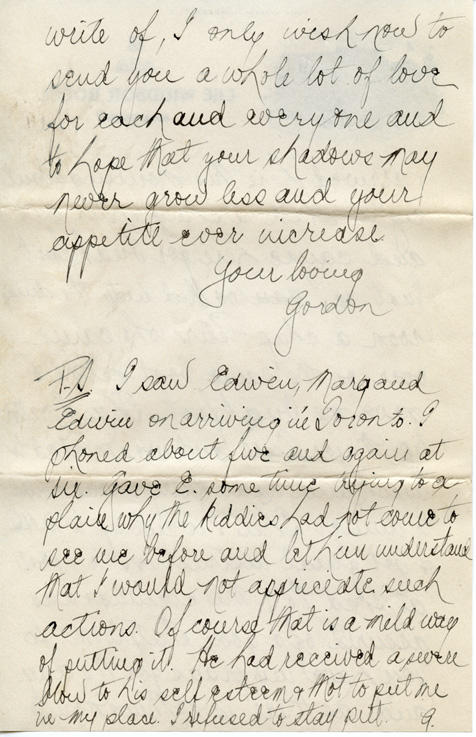 write of, I only wish now to
send you a whole lot of love
for each and everyone and
to hope that your shadows may
never grow less and your
appetite ever increase
Your loving
Gordon
P.S. I saw Edwin, Marg and
Edwin on arriving in Toronto. I
phoned about five and again at
six. Gave E. some time trying to a
plain why the kiddies had not come to
see me before and let him understand
that I would not appreciate such
actions. Of course that is a mild way
of putting it. He had received a severe
blow to his self esteem & tho to put me
in my place. I refused to stay put. G.